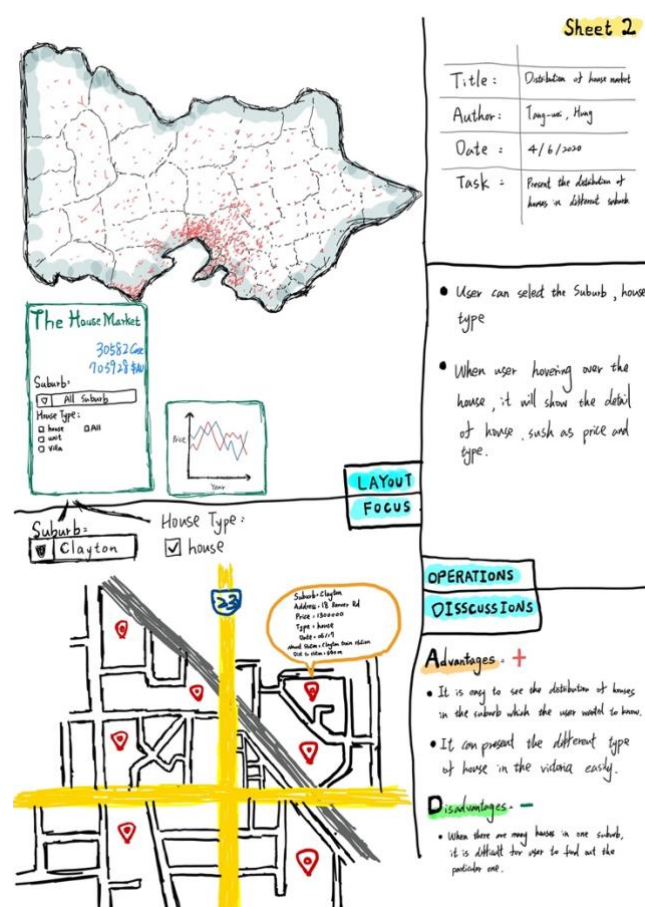 Sheet 2
Title :
Distribution of house market
Author :
Tang-wei, Hung
Date :
4/6/2020
Task :
Present the distribution of
houses in different suburb
The House Market
30582 Case
705928 $AU
Suburb:
All Suburb
House Type:
house
All
unit
Villa
Price
Year
LAYOUT
FOCUS
User can select the Suburb, house
type
When user hovering over the
house, it will show the detail
of house, sush as price and
type.
OPERATIONS
DISSCUSSIONS
Suburb:
Clayton
House Type:
house
23
Suburb: Clayton
Price = 1300000
Type = house
Advantages: +
It is easy to see the distribution of houses
in the suburb which the user wanted to know.
It can present the different type
of house in the victoria easily.
Disadvantages: -
When there are many houses in one suburb,
it is difficult for user to find out the
particular one.